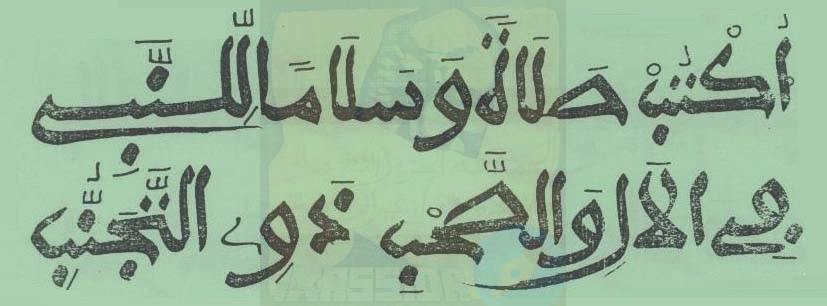 أُكْتُبْ صَلَاةً وَسَلَامًا لِلنَّبِي
فِي الْآلِ وَالصَّحْبِ ذَوِي التَّجَنُّبِ